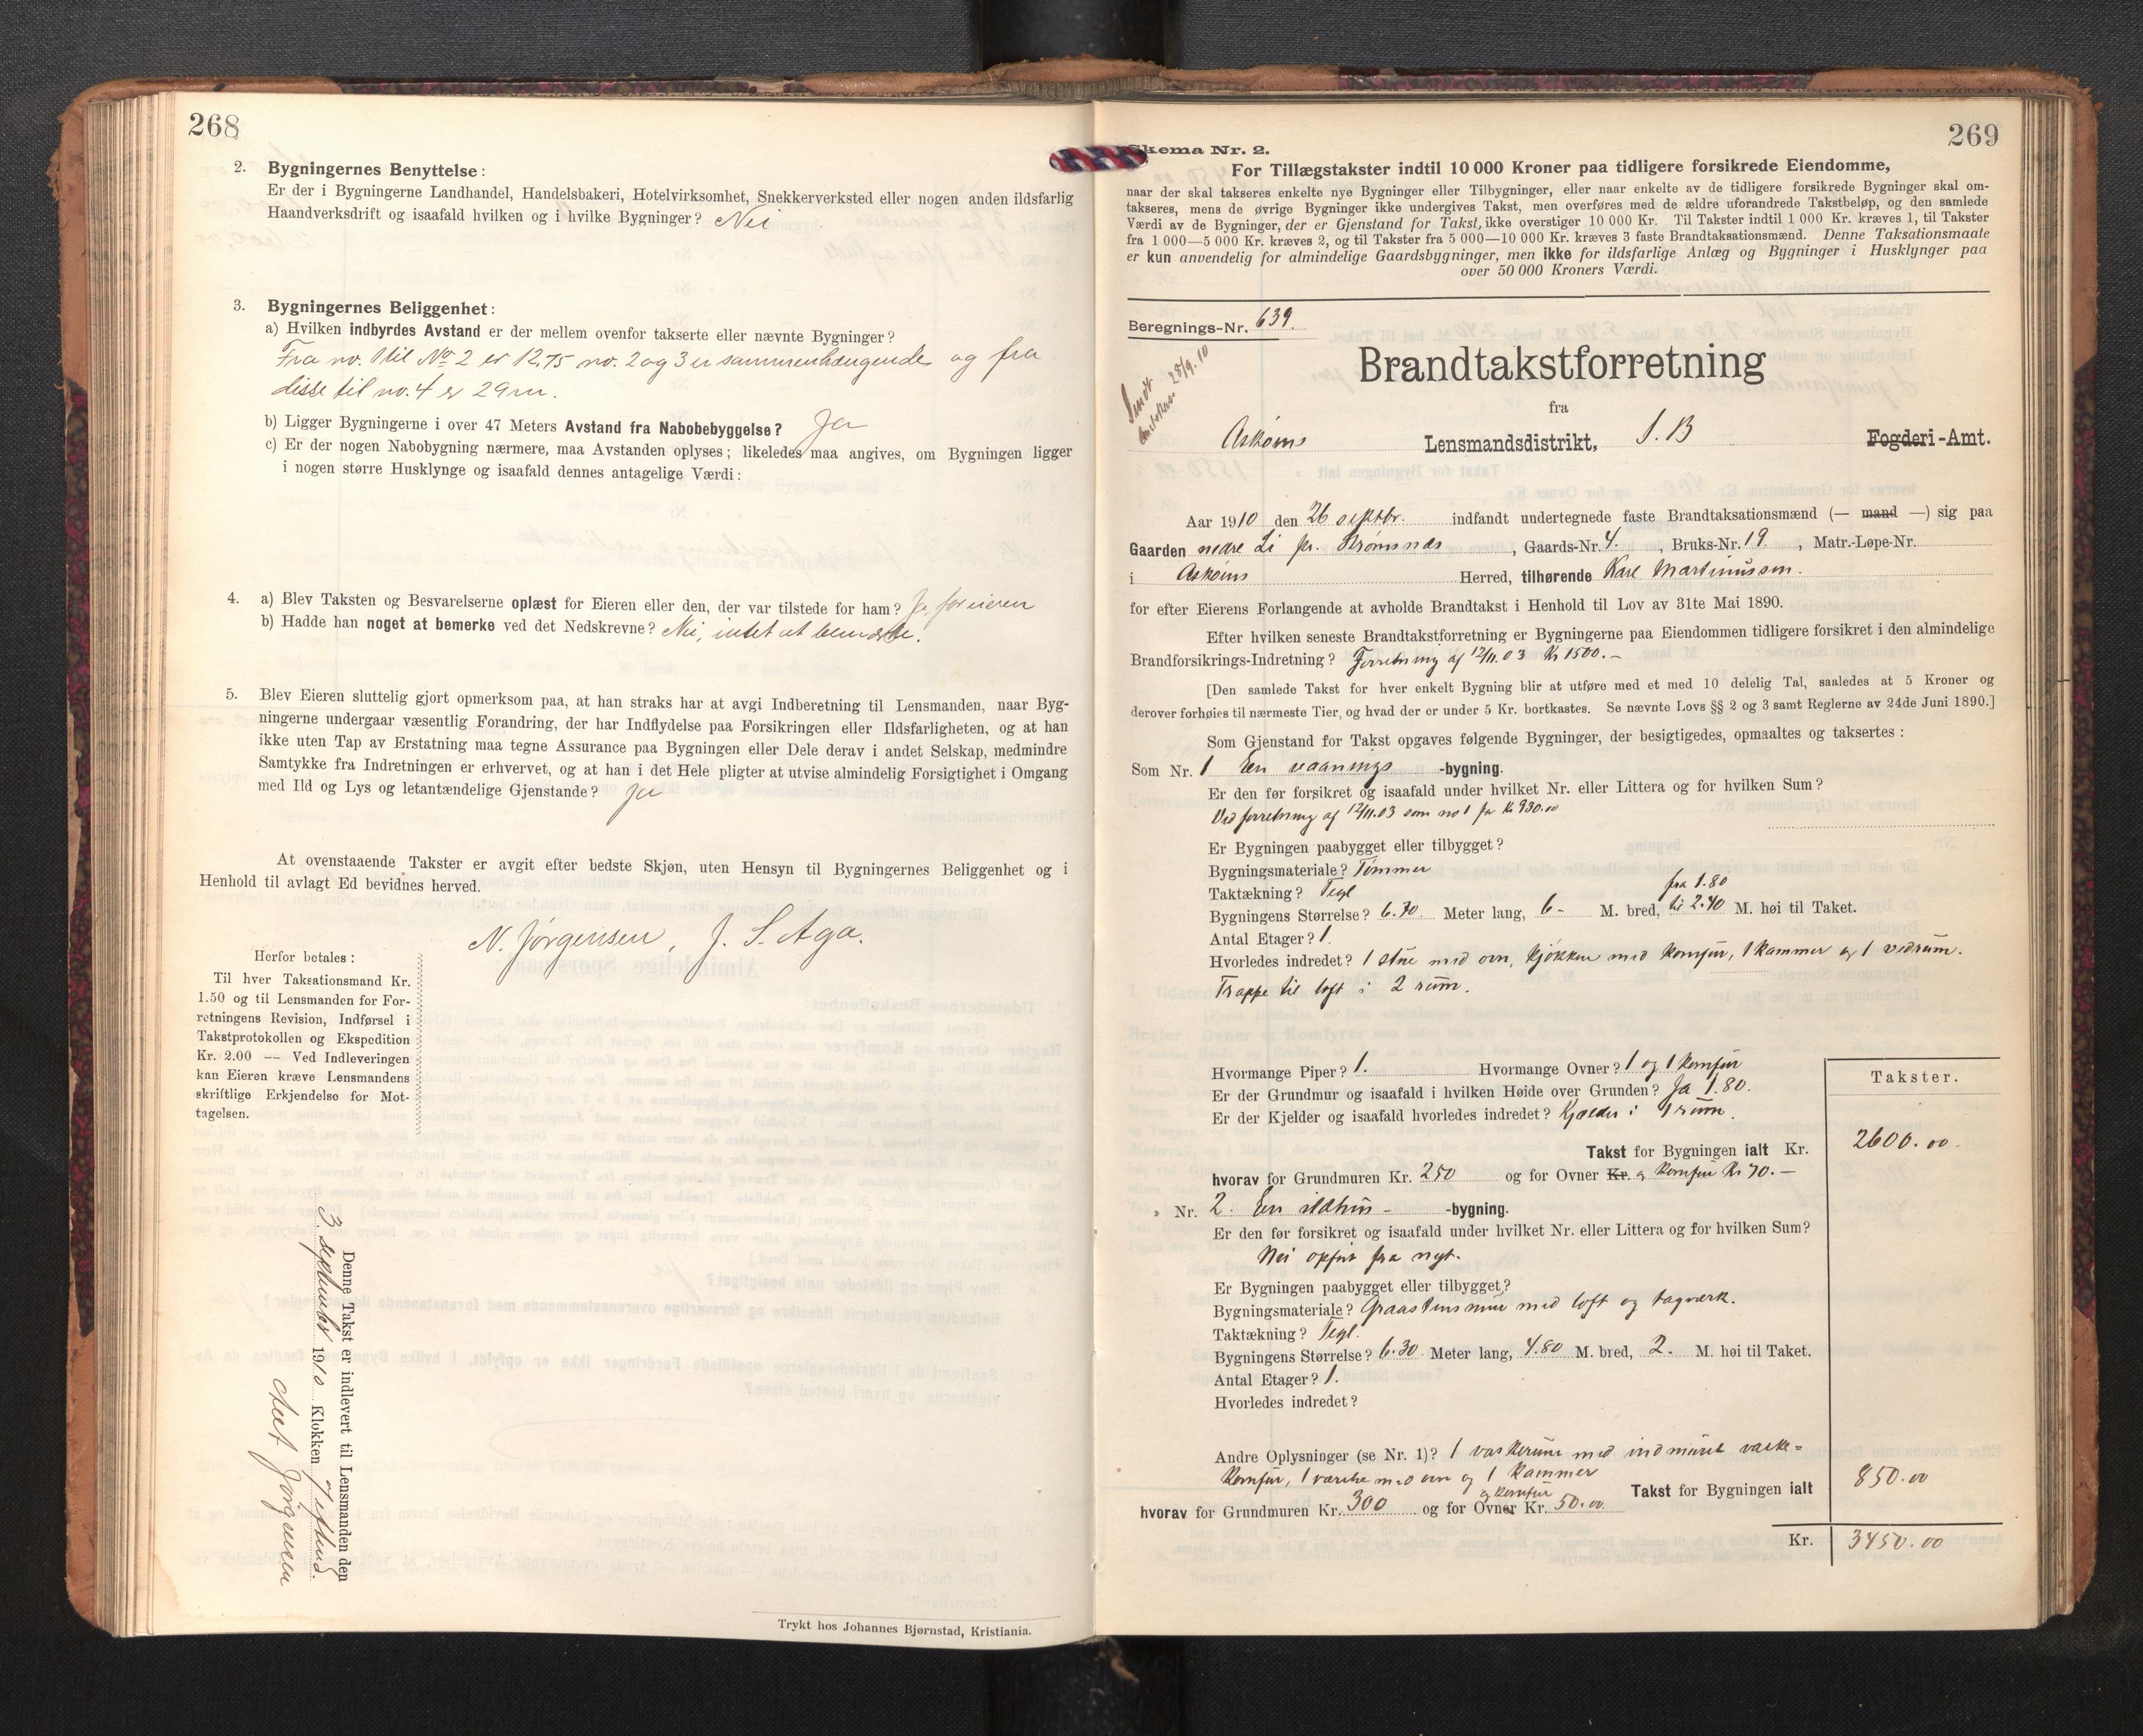 268
2. Bygningernes Benyttelse:
Er der i Bygningerne Landhandel, Handelsbakeri, Hotelvirksomhet, Snekkerverksted eller nogen anden ildsfarlig
Haandverksdrift og isaafald hvilken og i hvilke Bygninger? Nei
3. Bygningernes Beliggenhet:
a) Hvilken indbyrdes Avstand er der mellem ovenfor takserte eller nævnte Bygninger?
Fra no. 1 til No 2 er 12,75 no. 2 og 3 er sammenhængende og fra
disse til no. 4 er 29 m.
b) Ligger Bygningerne i over 47 Meters Avstand fra Nabobebyggelse? Ja
c) Er der nogen Nabobygning nærmere, maa Avstanden oplyses; likeledes maa angives, om Bygningen ligger
i nogen større Husklynge og isaafald dennes antagelige Værdi:
4. a) Blev Taksten og Besvarelserne oplæst for Eieren eller den, der var tilstede for ham? Ja for eieren
b) Hadde han noget at bemerke ved det Nedskrevne? Nei, intet at bemærke.
5. Blev Eieren sluttelig gjort opmerksom paa, at han straks har at avgi Indberetning til Lensmanden, naar Byg-
ningerne undergaar væsentlig Forandring, der har Indflydelse paa Forsikringen eller Ildsfarligheten, og at han
ikke uten Tap av Erstatning maa tegne Assurance paa Bygningen eller Dele derav i andet Selskap, medmindre
Samtykke fra Indretningen er erhvervet, og at han i det Hele pligter at utvise almindelig Forsigtighet i Omgang
med Ild og Lys og letantændelige Gjenstande? Ja
At ovenstaaende Takster er avgit efter bedste Skjøn, uten Hensyn til Bygningernes Beliggenhet og i
Henhold til avlagt Ed bevidnes herved.
N. Jørgensen, J. S. Aga.
Herfor betales:
Til hver Taksationsmand Kr.
1.50 og til Lensmanden for For-
retningens Revision, Indførsel i
Takstprotokollen og Ekspedition
Kr. 2.00 — Ved Indleveringen
kan Eieren kræve Lensmandens
skriftlige Erkjendelse for Mot-
tagelsen.
Denne Takst er indlevert til Lensmanden den
3. september 1910 Klokken 7 efthmd.
Jørgensen
Trykt hos Johannes Bjørnstad, Kristiania.
269
Skema Nr. 2.
For Tillægstakster indtil 10 000 Kroner paa tidligere forsikrede Eiendomme,
naar der skal takseres enkelte nye Bygninger eller Tilbygninger, eller naar enkelte av de tidligere forsikrede Bygninger skal om-
takseres, mens de øvrige Bygninger ikke undergives Takst, men overføres med de ældre uforandrede Takstbeløp, og den samlede
Værdi av de Bygninger, der er Gjenstand for Takst, ikke overstiger 10 000 Kr. Til Takster indtil 1 000 Kr. kræves 1, til Takster
fra 1 000—5 000 Kr. kræves 2, og til Takster fra 5 000—10 000 Kr. kræves 3 faste Brandtaksationsmænd. Denne Taksationsmaate
er kun anvendelig for almindelige Gaardsbygninger, men ikke for ildsfarlige Anlæg og Bygninger i Husklynger paa
over 50 000 Kroners Værdi.
Beregnings-Nr. 639.
Sendt 28/9.10
Brandtakstforretning
fra
Askøens Lensmandsdistrikt, S. B Fogderi-Amt.
Aar 1910 den 26 septbr. indfandt undertegnede faste Brandtaksationsmænd (— mand —) sig paa
Gaarden nedre Li pr. Strømsnes, Gaards-Nr. 4., Bruks-Nr. 19., Matr.-Løpe-Nr.
i Askøens Herred, tilhørende Karl Martinussen.
for efter Eierens Forlangende at avholde Brandtakst i Henhold til Lov av 31te Mai 1890.
Efter hvilken seneste Brandtakstforretning er Bygningerne paa Eiendommen tidligere forsikret i den almindelige
Brandforsikrings-Indretning? Forretning af 12/11.03 Kr 1500.-
[Den samlede Takst for hver enkelt Bygning blir at utføre med et med 10 delelig Tal, saaledes at 5 Kroner og
derover forhøies til nærmeste Tier, og hvad der er under 5 Kr. bortkastes. Se nævnte Lovs §§ 2 og 3 samt Reglerne av 24de Juni 1890.]
Som Gjenstand for Takst opgaves følgende Bygninger, der besigtigedes, opmaaltes og taksertes:
Som Nr. 1 En vaanings -bygning.
Er den før forsikret og isaafald under hvilket Nr. eller Littera og for hvilken Sum?
Ved forretning af 12/11.03 som no 1 for Kr 930.00
Er Bygningen paabygget eller tilbygget?
Bygningsmateriale? Tømmer
Taktækning? Tegl
Bygningens Størrelse? 6.70 Meter lang, 6- M. bred, fra 1.80 til 2.40 M. høi til Taket.
Antal Etager? 1.
Hvorledes indredet? 1 stue med ovn, kjøkken med komfur, 1 kammer og 1 vedrum.
Trappe til loft i 2 rum.
Hvormange Piper? 1. Hvormange Ovner? 1 og 1 komfur
Er der Grundmur og isaafald i hvilken Høide over Grunden? Ja 1.80.
Er der Kjelder og isaafald hvorledes indredet? Kjælder i 1 rum.
Takster.
Takst for Bygningen ialt Kr. 2600.00
hvorav for Grundmuren Kr. 250 og for Ovner Kr. og komfur Kr 70.-
" Nr. 2. En ildhus- -bygning.
Er den før forsikret og isaafald under hvilket Nr. eller Littera og for hvilken Sum?
Nei opfør fra nyt.
Er Bygningen paabygget eller tilbygget?
Bygningsmateriale? Graastensmur med loft og tagværk.
Taktækning? Tegl.
Bygningens Størrelse? 6.30 Meter lang, 4.80 M. bred, 2. M. høi til Taket.
Antal Etager? 1.
Hvorledes indredet?
Andre Oplysninger (se Nr. 1)? 1 vaskerum med indmuret vaske=
komfur, 1 værelse med ovn og 1 kammer
Takst for Bygningen ialt 850.00
hvorav for Grundmuren Kr. 300 og for Ovner og komfur Kr. 50.00
Kr. 3450.00